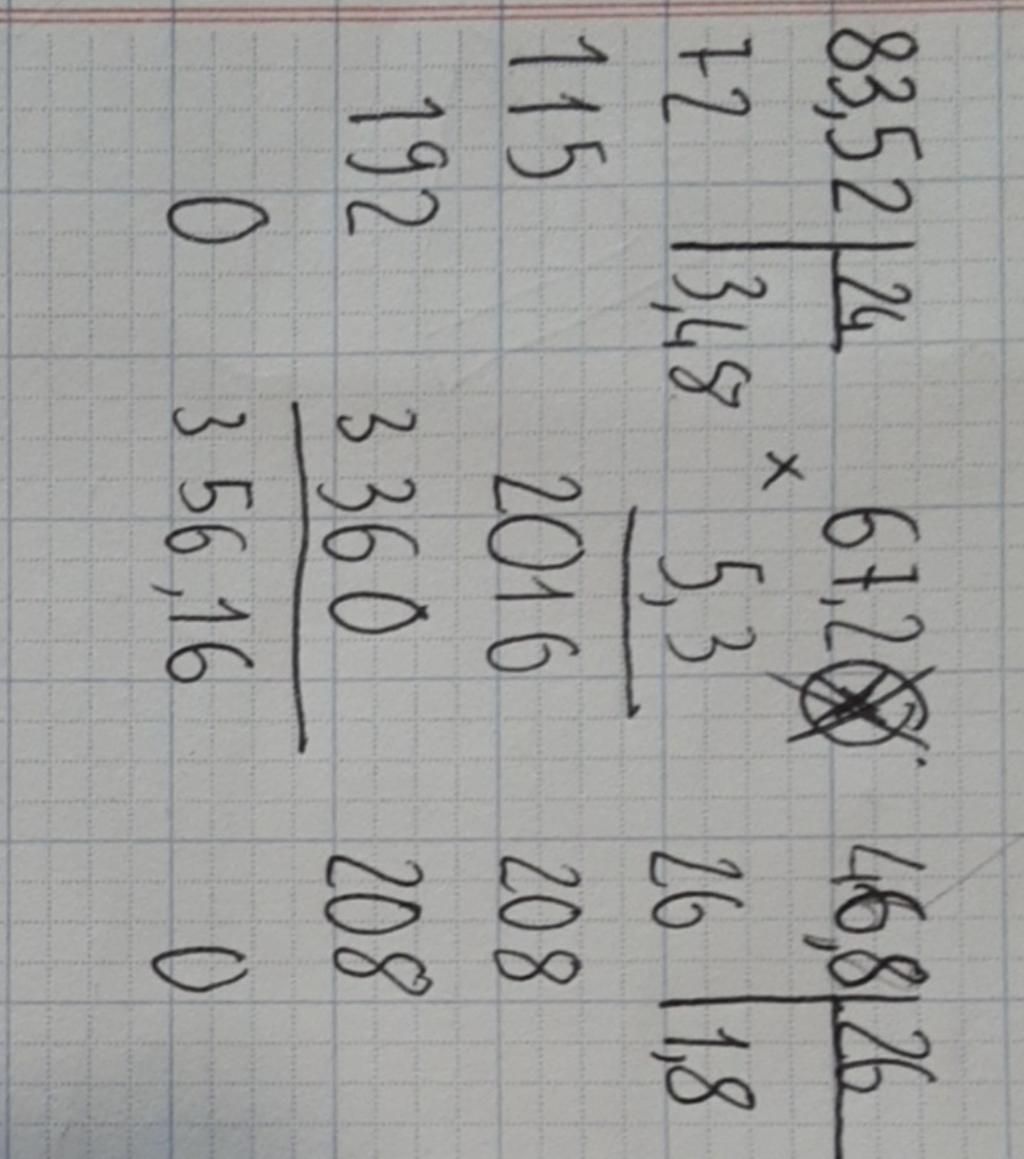 83,52 24
72 3,48
115
192
0
67,2
× 5,3
2016
3360
356,16
46,8 26
26 1,8
208
208
0